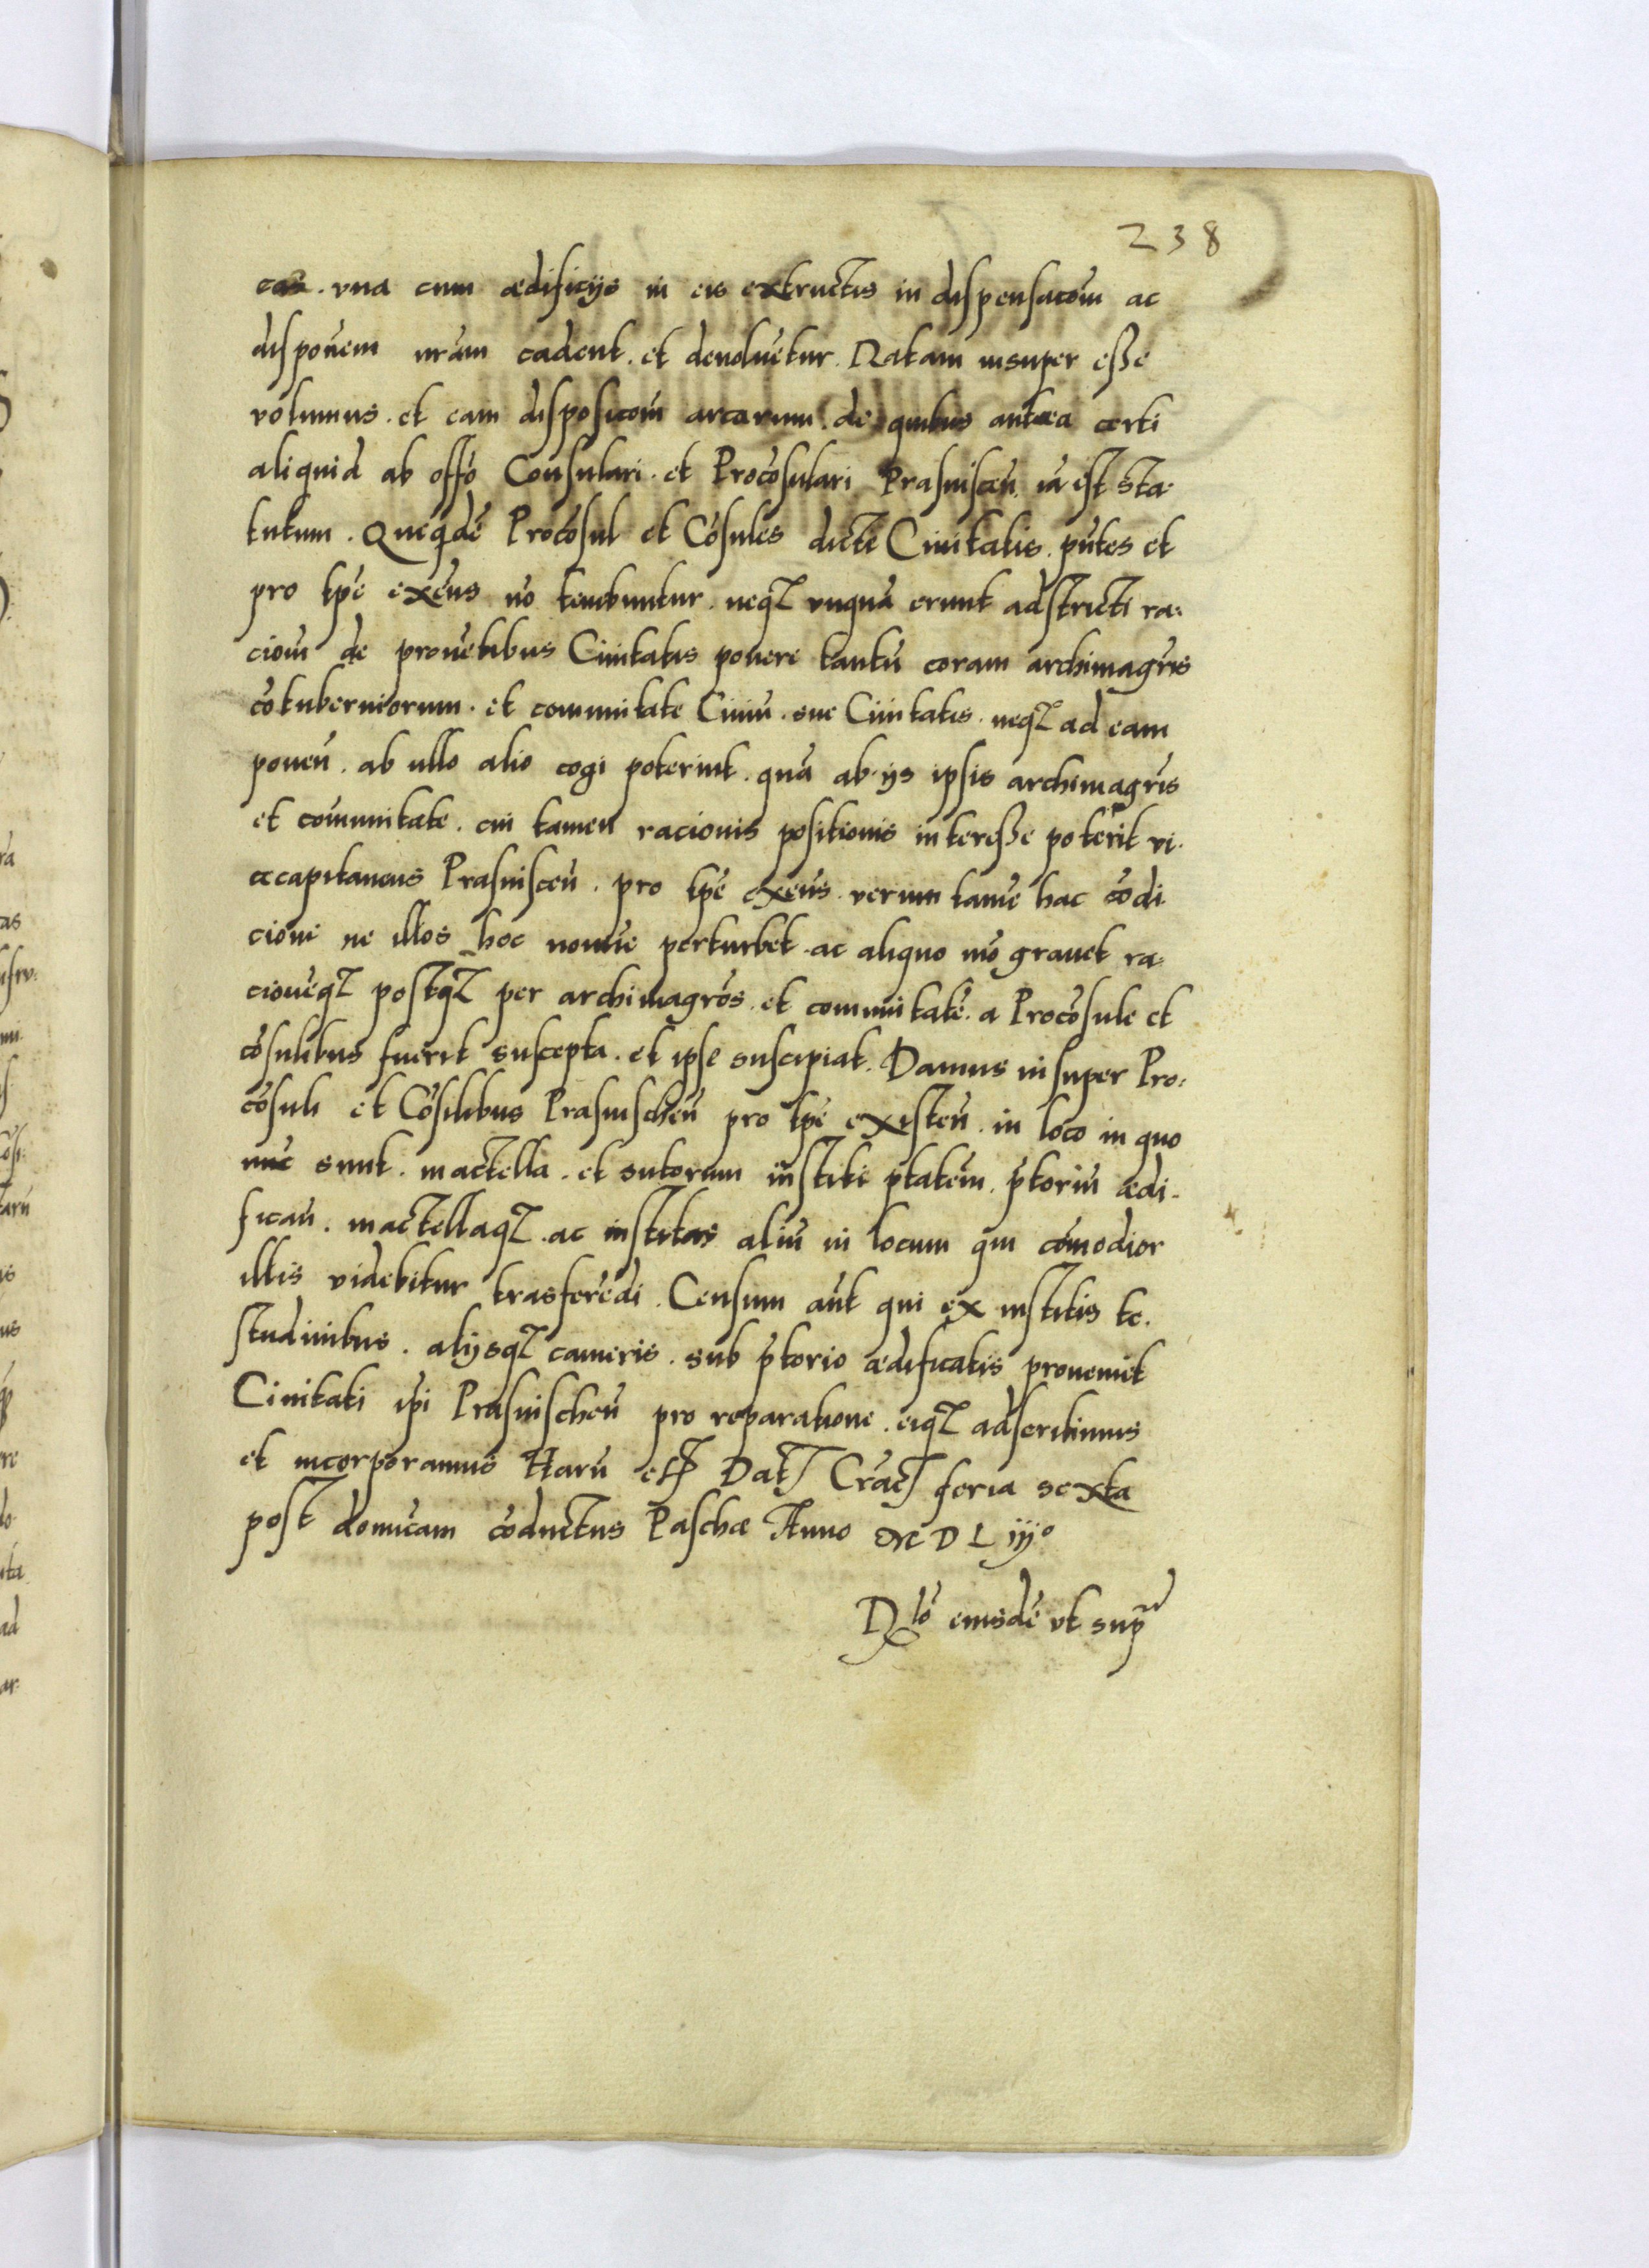 238
eas. vna cum ædificijs in eis extructis in dispensacōm ac
disponem nrām cadent. et deuoluētur. Ratam insuper eſſe
volumus. et eam disposicōm arearum. de quibus antea certi
aliquid ab offō Consulari. et Procōsulari Prasnisceñ. iā est sta-
tutum. Queqdē Procōsul et Cōsules dictē Ciuitatis. pn̄tes et
pro tp̄e exeñs nō tenebuntur. neqȝ vnquā erunt adstricti ra-
ciom̄ de prouētibus Ciuitatis ponere tantū coram archimagr̄is
cōtuberniorum. et comunitate Ciuiū. sue Ciuitatis. neqȝ ad eam
poneñ. ab ullo alio cogi poterint. quā ab ijs ipsis archimagr̄is
et com̄unitate. cui tamen racionis positionis intereſſe poterit vi-
cecapitaneus Prasnisceñ. pro tp̄e exeñs. verum tamē hac cōdi
cione ne illos hoc nomīe perturbet. ac aliquo mō grauet ra-
cionēqȝ postqȝ per archimagrōs. et comunitatē. a Procōsule et
cōsulibus fuerit suscepta. et ipse suscipiat. Damus insuper Pro-
cōsuli et Cōsulibus Prasnischeñ pro tp̄e existeñ. in loco in quo
nūc sunt. mactella. et sutorum institē ptātem. p̄toriū ædi-
ficañ. mactellaqȝ. ac institas aliū in locum qui cōmodior
illis videbitur trāsferēdi. Censum aūt qui ex institis te-
studinibus. alijsqȝ cameris. sub p̄torio ædificatis proueniet
Ciuitati ip̄i Prasnischeñ pro reparatione. eiqȝ adscribimus
et incorporamus Harū etc Dat Crāc feria sexta
post domīcam cōductus Paschæ Anno MDLiijo
Rlō eiusdē vt supra